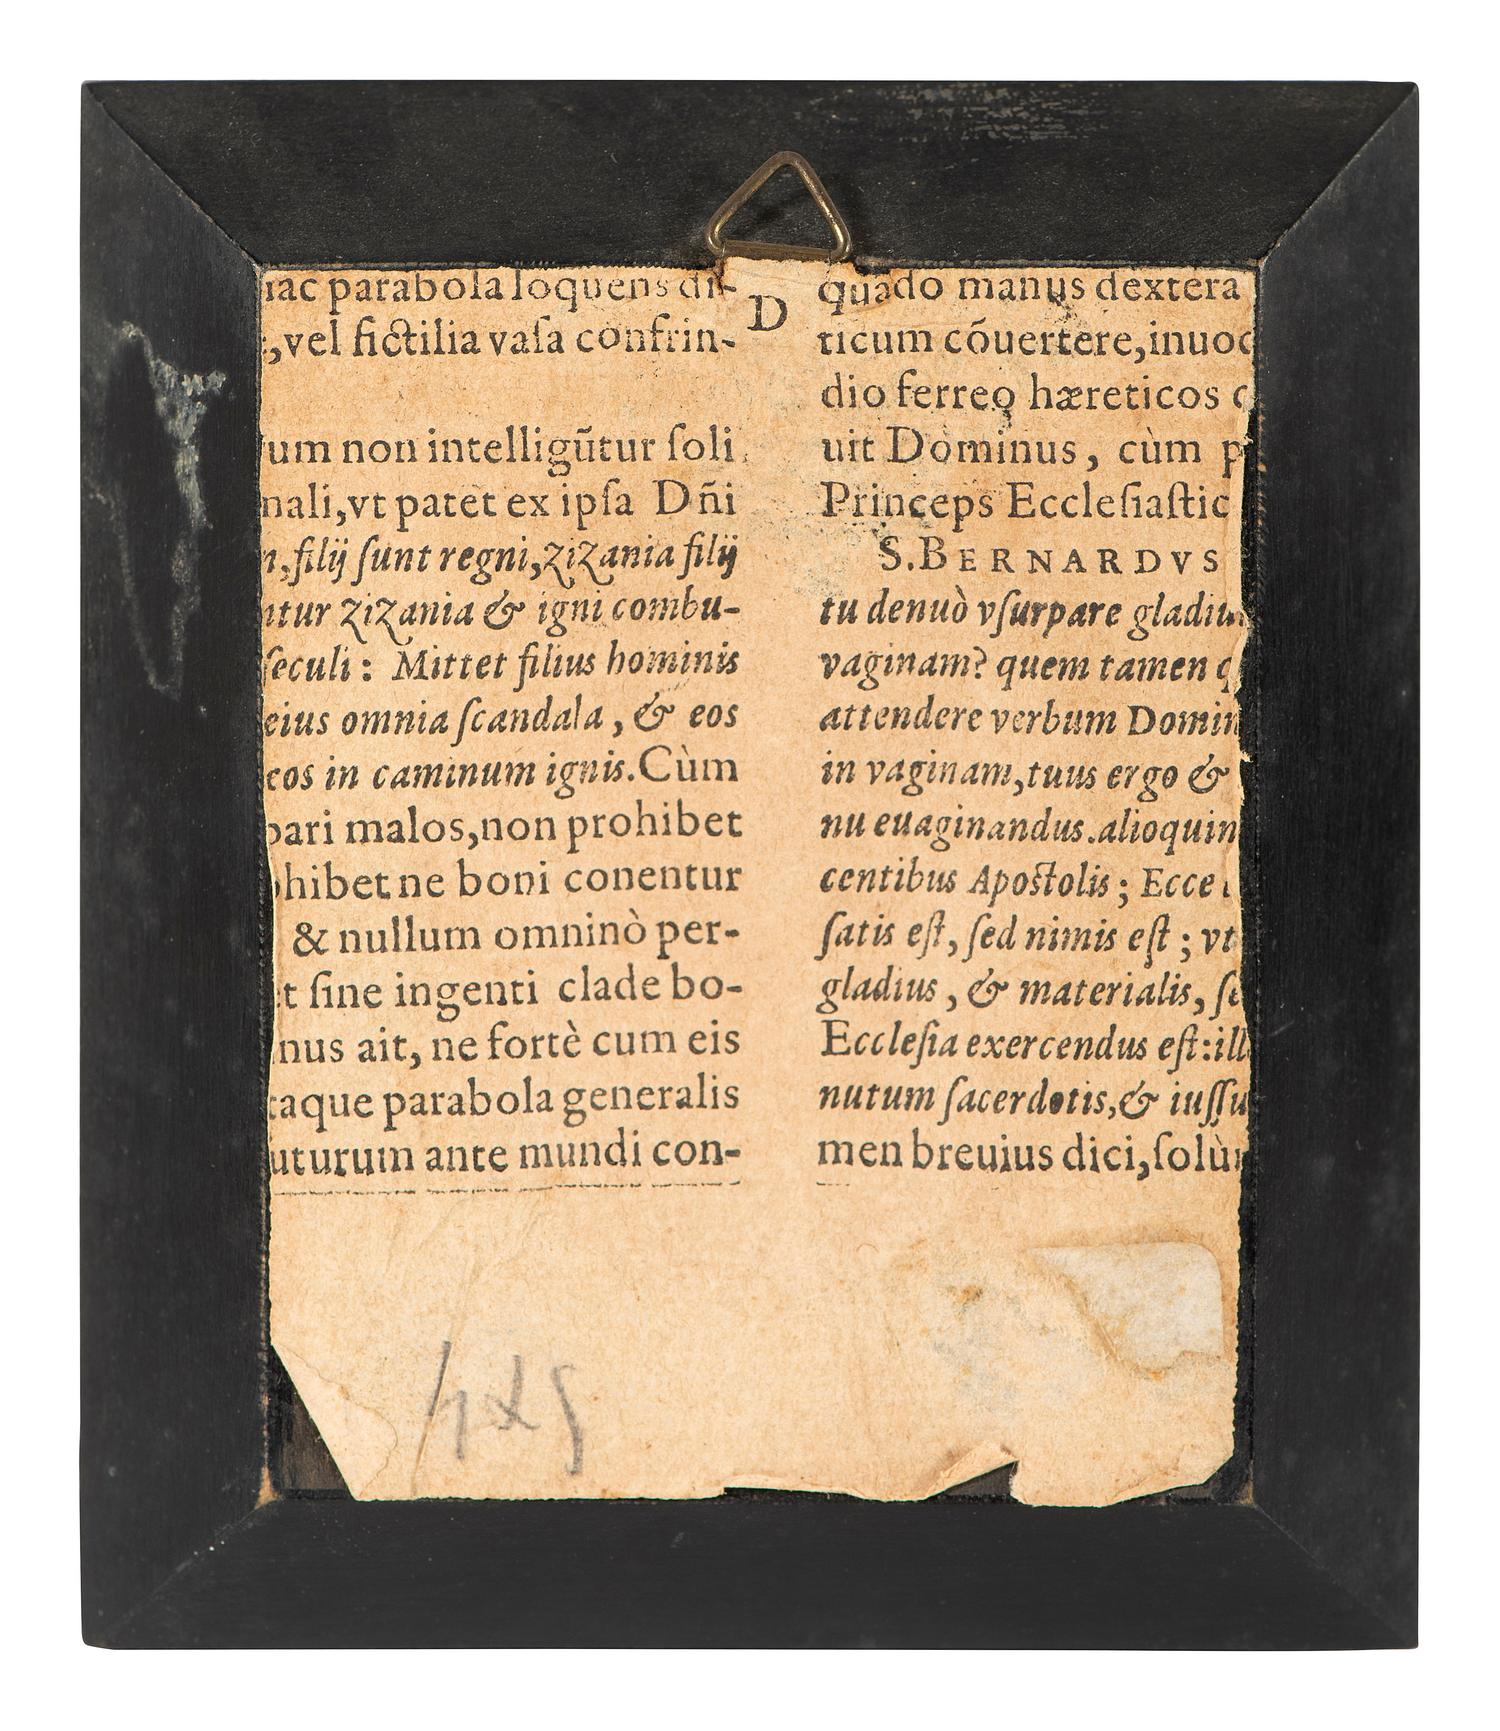 ac parabola loquens di-
, vel fictilia vaſa confrin-
um non intelligũtur ſoli
nali, vt patet ex ipſa Dñi
n, filij ſunt regni, zizania filij
ntur zizania & igni combu-
ſeculi: Mittet filius hominis
eius omnia ſcandala, & eos
eos in caminum ignis. Cùm
pari malos, non prohibet
hibet ne boni conentur
& nullum omninò per-
t ſine ingenti clade bo-
nus ait, ne fortè cum eis
taque parabola generalis
uturum ante mundi con-
D
quãdo manus dextera
ticum cõuertere, inuoc
dio ferreo hæreticos
uit Dominus, cùm p
Princeps Eccleſiaſtic
S. BERNARDVS
tu denuò vſurpare gladiu
vaginam? quem tamen q
attendere verbum Domin
in vaginam, tuus ergo &
nu euaginandus. alioquin
centibus Apoſtolis; Ecce
ſatis eſt, ſed nimis eſt; vt
gladius, & materialis, ſe
Eccleſia exercendus eſt: ill
nutum ſacerdotis, & iuſſu
men breuius dici, ſolùm